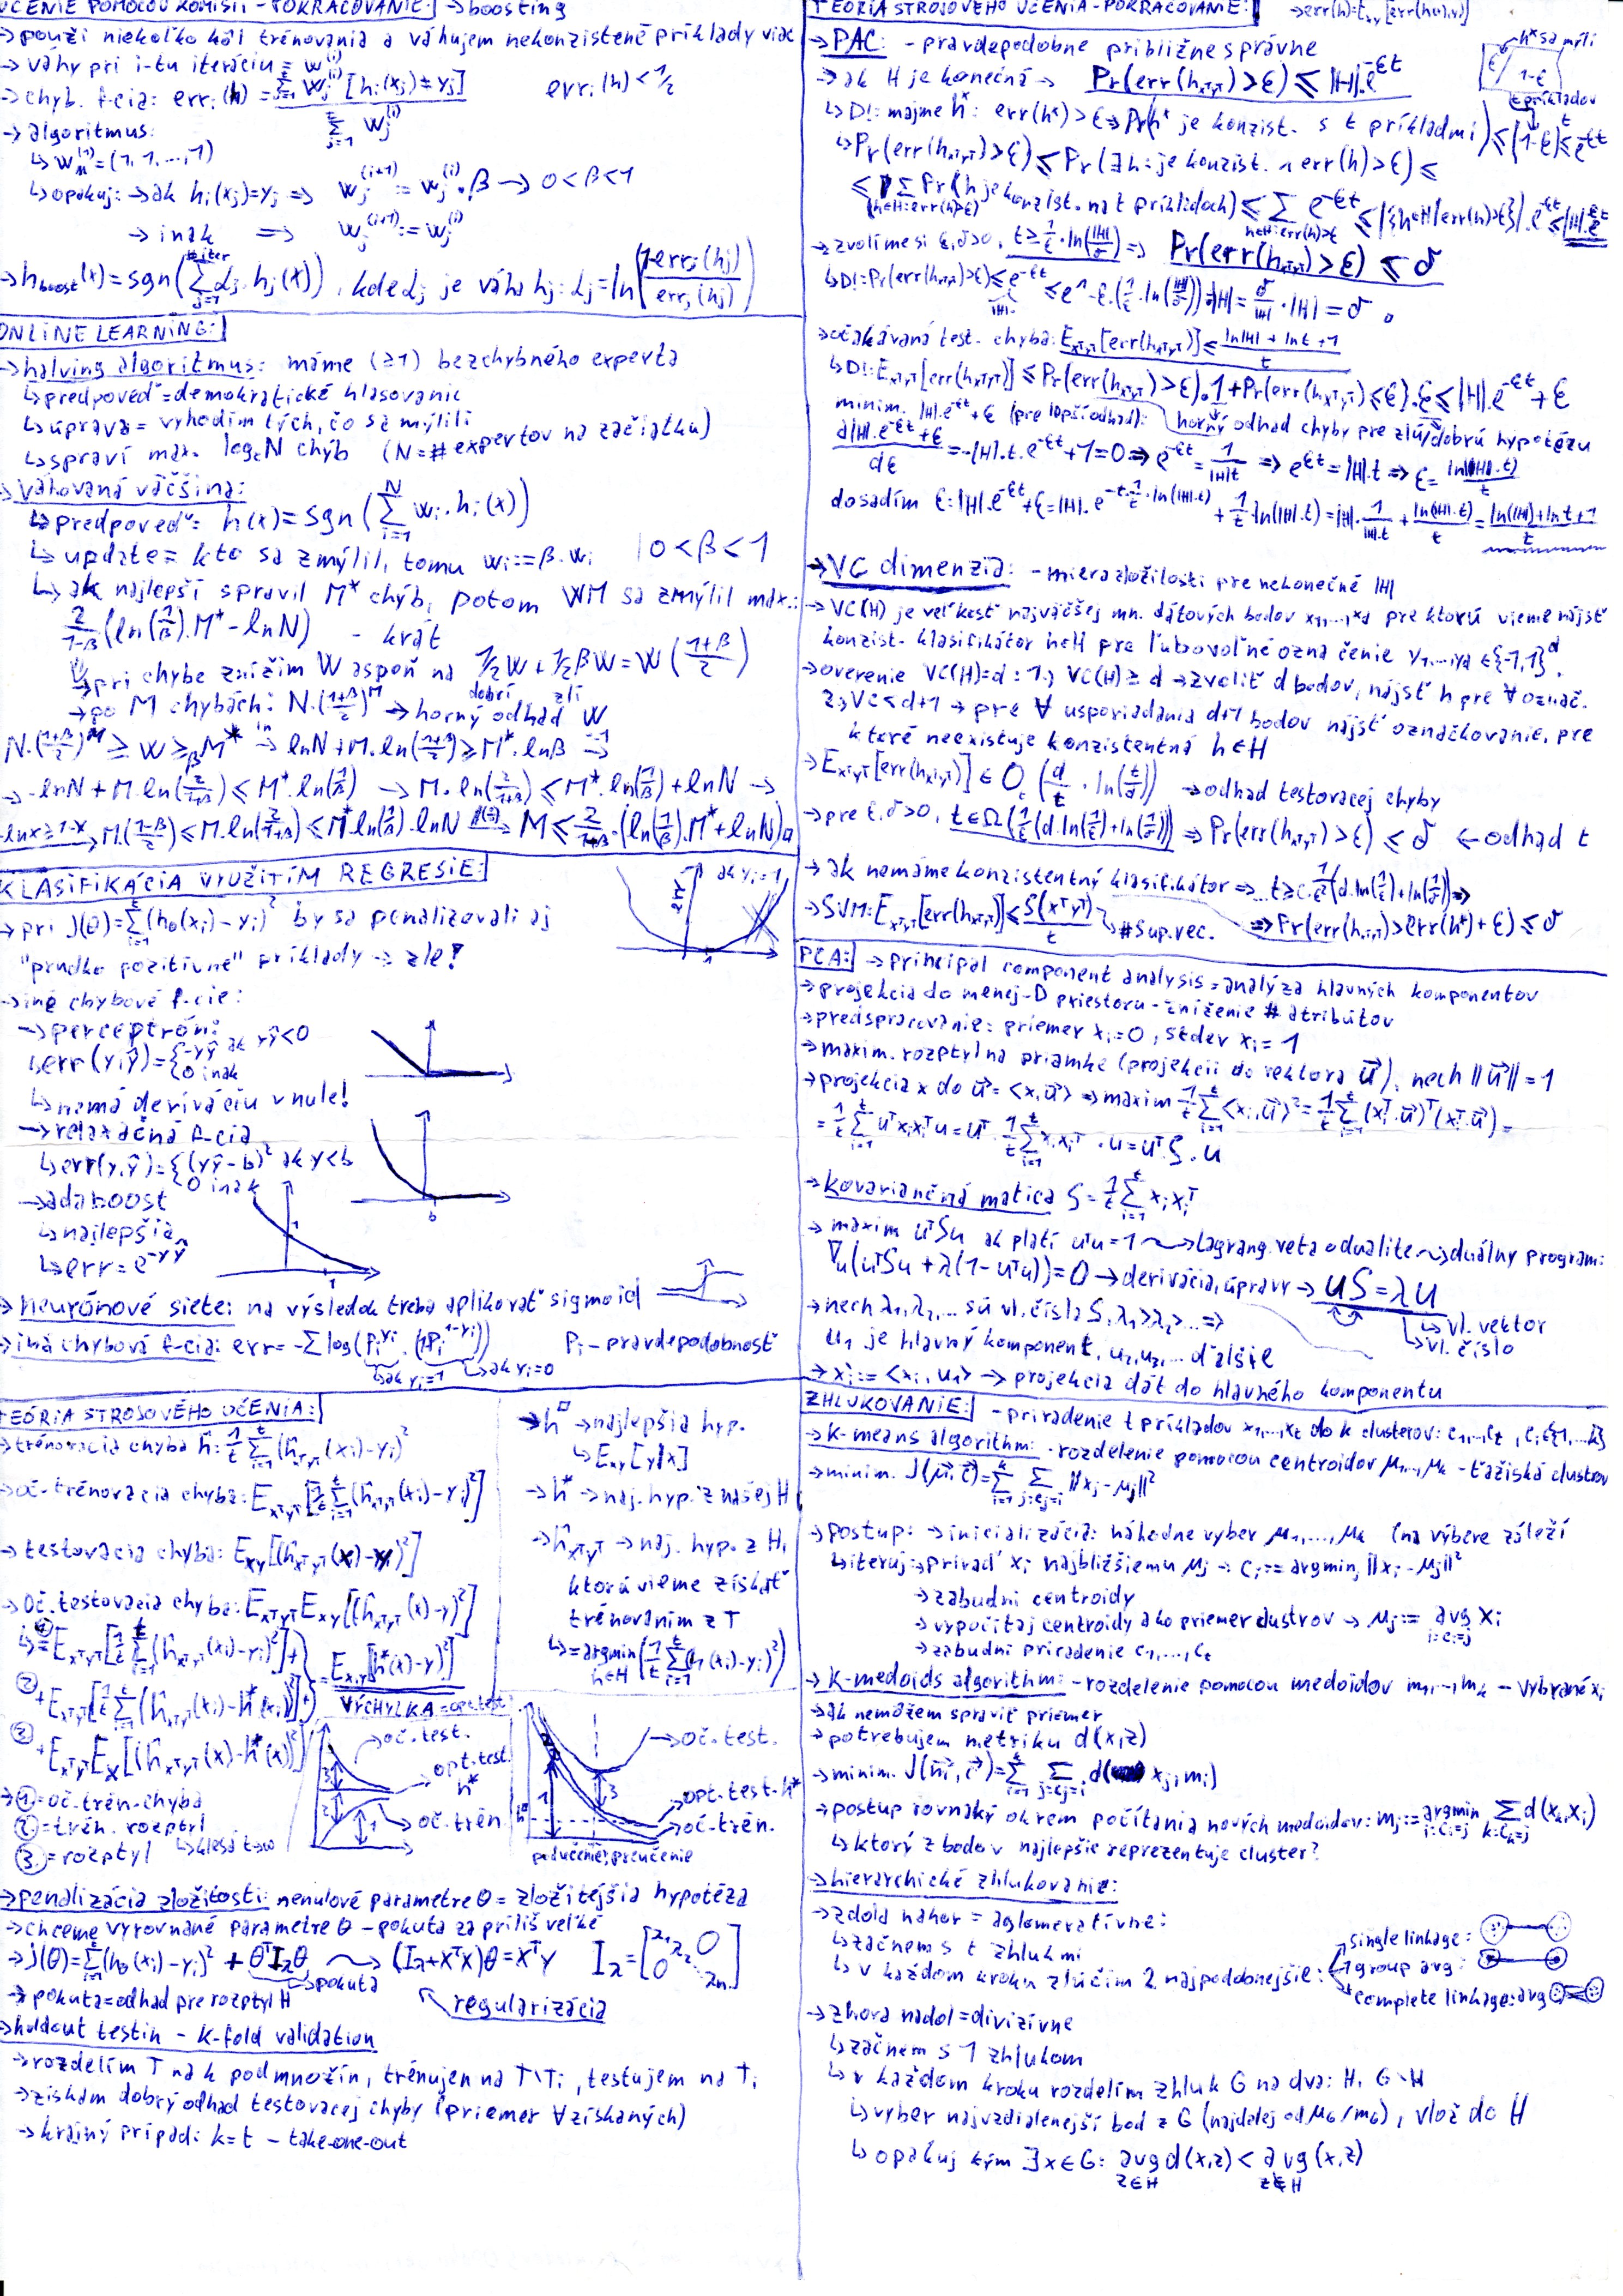 UČENIE POMOCOU KOMISII - POKRAČOVANIE: → boosting
→ použi niekoľko kôl trénovania a váhujem nekonzistené príklady viac
→ váhy pri i-tu iteráciu = w^(i)
→ chyb. f-cia: err_i(h) = Σ_{j=1}^t w_j^(i) [h_i(x_j) ≠ y_j] / Σ_{j=1}^t w_j^(i)   err_i(h) < 1/2
→ algoritmus:
↳ w^(1) = (1, 1, ..., 1)
↳ opakuj: → ak h_i(x_j) = y_j ⇒ w_j^(i+1) := w_j^(i) · β → 0 < β < 1
→ inak ⇒ w_j^(i+1) := w_j^(i)
→ h_boost(x) = sgn(Σ_{j=1}^{#iter} α_j · h_j(x)), kde α_j je váha h_j: α_j = ln((1-err_j(h_j)) / err_j(h_j))
ONLINE LEARNING:
→ halving algoritmus: máme (≥1) bezchybného experta
↳ predpoveď = demokratické hlasovanie
↳ úprava = vyhodím tých, čo sa mýlili
↳ spraví max. log₂N chýb (N = # expertov na začiatku)
→ Váhovaná väčšina:
↳ predpoveď: h(x) = sgn(Σ_{i=1}^N w_i · h_i(x))
↳ update = kto sa zmýlil, tomu w_i := β · w_i | 0 < β < 1
↳ ak najlepší spravil M* chýb, potom WM sa zmýlil max.:
2/(1-β) (ln(1/β) · M* - lnN) - krát
↳ pri chybe znížim W aspoň na 1/2 W + 1/2 βW = W((1+β)/2)
dobrí zlí
→ po M chybách: N · ((1+β)/2)^M → horný odhad W
N · ((1+β)/2)^M ≥ W ≥ β^M* →ln lnN + M · ln((1+β)/2) ≥ M* · lnβ →·(-1)
→ -lnN + M · ln(2/(1+β)) ≤ M* · ln(1/β) → M · ln(2/(1+β)) ≤ M* · ln(1/β) + lnN →
-lnx ≥ 1-x → M · ((1-β)/2) ≤ M · ln(2/(1+β)) ≤ M* ln(1/β) · lnN → M ≤ 2/(1-β) · (ln(1/β) · M* + lnN) □
KLASIFIKÁCIA VYUŽITÍM REGRESIE:
err ak y_i = 1
→ pri J(θ) = Σ_{i=1}^t (h_θ(x_i) - y_i)² by sa penalizovali aj
"prudko pozitívne" príklady → zle!
→ iné chybové f-cie:
→ perceptrón:
↳ err(y, ŷ) = { -yŷ ak yŷ < 0
0 inak
↳ nemá deriváciu v nule!
→ relaxačná f-cia
↳ err(y, ŷ) = { (yŷ - b)² ak y < b
0 inak
b
→ adaboost
↳ najlepšia
↳ err = e^{-yŷ}
1
→ neurónové siete: na výsledok treba aplikovať sigmoid
→ iná chybová f-cia: err = -Σ log(p_i^{y_i} · (1-p_i)^{1-y_i})   p_i - pravdepodobnosť
↳ ak y_i = 1 ↳ ak y_i = 0
TEÓRIA STROJOVÉHO UČENIA:
→ trénovacia chyba ĥ: 1/t Σ_{i=1}^t (ĥ_{x^T,y^T}(x_i) - y_i)²
→ oč. trénovacia chyba: E_{x^T,y^T}[1/t Σ_{i=1}^t (ĥ_{x^T,y^T}(x_i) - y_i)²]
→ testovacia chyba: E_{xy}[(ĥ_{x^T,y^T}(x) - y)²]
→ oč. testovacia chyba: E_{x^T,y^T} E_{xy}[(ĥ_{x^T,y^T}(x) - y)²]
① ↳ = E_{x^T,y^T}[1/t Σ_{i=1}^t (ĥ_{x^T,y^T}(x_i) - y_i)²] + } = E_{x,y}[(h*(x) - y)²]
② + E_{x^T,y^T}[1/t Σ_{i=1}^t (ĥ_{x^T,y^T}(x_i) - h*(x_i))²] +
VÝCHYLKA = opt. test.
③ + E_{x^T,y^T} E_x[(ĥ_{x^T,y^T}(x) - h*(x))²]
→ ① = oč. trén. chyba
② = trén. rozptyl
③ = rozptyl ↳ klesá t→∞
→ h□ → najlepšia hyp.
↳ E_{xy}[y|x]
→ h* → naj. hyp. z našej H
→ ĥ_{x^T,y^T} → naj. hyp. z H,
ktorú vieme získať
trénovaním z T
↳ = argmin_{h∈H} (1/t Σ_{i=1}^t (h(x_i) - y_i)²)
oč. test.
opt. test. h*
oč. trén.
3
2
1
oč. test.
opt. test. h*
oč. trén.
1
3
h□
podučenie, preučenie
→ penalizácia zložitosti: nenulové parametre θ = zložitejšia hypotéza
→ chceme vyrovnané parametre θ - pokuta za príliš veľké
→ J(θ) = Σ_{i=1}^t (h_θ(x_i) - y_i)² + θ^T I_λ θ ⇝ (I_λ + X^T X)θ = X^T y   I_λ = [λ₁ λ₂ ... λ_n 0 0]
↳ pokuta
→ pokuta = odhad pre rozptyl H
regularizácia
→ holdout testin - k-fold validation
→ rozdelím T na k podmnožín, trénujem na T\T_i, testujem na T_i
→ získam dobrý odhad testovacej chyby (priemer ∀ získaných)
→ krajný prípad: k = t - take-one-out
TEÓRIA STROJOVÉHO UČENIA - POKRAČOVANIE: → err(h) = E_{x,y}[err(h(x), y)]
→ PAC: - pravdepodobne približne správne
h* sa mýli
ε 1-ε
t príkladov
→ ak H je konečná → Pr(err(h_{x^T,y^T}) > ε) ≤ |H| · e^{-εt}
↳ D!: majme h*: err(h*) > ε → Pr(h* je konzist. s t príkladmi) ≤ (1-ε)^t ≤ e^{-εt}
↳ Pr(err(h_{x^T,y^T}) > ε) ≤ Pr(∃h: je konzist. ∧ err(h) > ε) ≤
≤ Σ_{h∈H: err(h)>ε} Pr(h je konzist. na t príkladoch) ≤ Σ_{h∈H: err(h)>ε} e^{-εt} ≤ |{h∈H | err(h) > ε}| · e^{-εt} ≤ |H| · e^{-εt}
→ zvolíme si ε, δ > 0, t ≥ 1/ε · ln(|H|/δ) ⇒ Pr(err(h_{x^T,y^T}) > ε) ≤ δ
↳ D!: Pr(err(h_{x^T,y^T}) > ε) ≤ |H| · e^{-εt} ≤ e^{-ε·(1/ε · ln(|H|/δ))} · |H| = δ/|H| · |H| = δ □
→ očakávaná test. chyba: E_{x^T,y^T}[err(h_{x^T,y^T})] ≤ (ln|H| + lnt + 1)/t
↳ D!: E_{x^T,y^T}[err(h_{x^T,y^T})] ≤ Pr(err(h_{x^T,y^T}) > ε) · 1 + Pr(err(h_{x^T,y^T}) ≤ ε) · ε ≤ |H| · e^{-εt} + ε
minim. |H| · e^{-εt} + ε (pre lepší odhad): horný odhad chyby pre zlú/dobrú hypotézu
d|H| · e^{-εt} + ε / dε = -|H| · t · e^{-εt} + 1 = 0 ⇒ e^{-εt} = 1/(|H|t) ⇒ e^{εt} = |H| · t ⇒ ε = ln(|H| · t)/t
dosadím ε: |H| · e^{-εt} + ε = |H| · e^{-t · 1/t · ln(|H|·t)} + 1/t · ln(|H| · t) = |H| · 1/(|H|·t) + ln(|H|·t)/t = (ln(|H|) + lnt + 1)/t
→ VC dimenzia: - miera zložitosti pre nekonečné |H|
→ VC(H) je veľkosť najväčšej mn. dátových bodov x₁, ..., x_d pre ktorú vieme nájsť
konzist. klasifikátor h∈H pre ľubovoľné označenie y₁, ..., y_d ∈ {-1, 1}^d.
→ overenie VC(H) = d: 1.) VC(H) ≥ d → zvoliť d bodov, nájsť h pre ∀ označ.
2.) VC < d+1 → pre ∀ usporiadania d+1 bodov nájsť označkovanie, pre
které neexistuje konzistentná h∈H
→ E_{x^T,y^T}[err(h_{x^T,y^T})] ∈ O(d/t · ln(t/d)) → odhad testovacej chyby
→ pre ε, δ > 0, t ∈ Ω(1/ε (d · ln(1/ε) + ln(1/δ))) ⇒ Pr(err(h_{x^T,y^T}) > ε) ≤ δ ← odhad t
→ ak nemáme konzistentný klasifikátor ⇒ ... t ≥ c · 1/ε² (d · ln(1/ε) + ln(1/δ)) ⇒
⇒ Pr(err(h_{x^T,y^T}) > err(h*) + ε) ≤ δ
→ SVM: E_{x^T,y^T}[err(h_{x^T,y^T})] ≤ S(x^T y^T)/t ↳ # sup. vec.
PCA: → principal component analysis = analýza hlavných komponentov
→ projekcia do menej-D priestoru - zníženie # atribútov
→ predspracovanie: priemer x_i = 0, stdev x_i = 1
→ maxim. rozptyl na priamke (projekcii do vektora u⃗), nech ||u⃗|| = 1
→ projekcia x do u⃗ = <x, u⃗> ⇒ maxim 1/t Σ_{i=1}^t <x_i, u⃗>² = 1/t Σ_{i=1}^t (x_i^T · u⃗)^T (x_i^T · u⃗) =
= 1/t Σ_{i=1}^t u^T x_i x_i^T u = u^T · 1/t Σ_{i=1}^t x_i x_i^T · u = u^T · S · u
→ kovariančná matica S = 1/t Σ_{i=1}^t x_i x_i^T
→ maxim u^T S u ak platí u^T u = 1 ⇝ Lagrang. veta o dualite ⇝ duálny program:
∇_u(u^T S u + λ(1 - u^T u)) = 0 → derivácia, úpravy → uS = λu
↳ vl. vektor
↳ vl. číslo
→ nech λ₁, λ₂, ... sú vl. čísla S, λ₁ > λ₂ > ... ⇒
u₁ je hlavný komponent, u₂, u₃, ... ďalšie
→ x_i := <x_i, u₁> → projekcia dát do hlavného komponentu
ZHLUKOVANIE: - priradenie t príkladov x₁, ..., x_t do k clusterov: c₁, ..., c_t, c_i ∈ {1, ..., k}
→ K-means algorithm: - rozdelenie pomocou centroidov μ₁, ..., μ_k - ťažiská clustrov
→ minim. J(μ⃗, c⃗) = Σ_{i=1}^k Σ_{j: c_j = i} ||x_j - μ_j||²
→ postup: → inicializácia: náhodne vyber μ₁, ..., μ_k (na výbere záleží
↳ iteruj: → priraď x_i najbližšiemu μ_j → c_i := argmin_j ||x_i - μ_j||²
→ zabudni centroidy
→ vypočítaj centroidy ako priemer clustrov → μ_j := avg_{i: c_i = j} x_i
→ zabudni priradenie c₁, ..., c_t
→ K-medoids algorithm: - rozdelenie pomocou medoidov m₁, ..., m_k - vybrané x_i
→ ak nemôžem spraviť priemer
→ potrebujem metriku d(x, z)
→ minim. J(m⃗, c⃗) = Σ_{i=1}^k Σ_{j: c_j = i} d(x_j, m_i)
→ postup rovnaký okrem počítania nových medoidov: m_j := argmin_{i: c_i = j} Σ_{k: c_k = j} d(x_k, x_i)
↳ ktorý z bodov najlepšie reprezentuje cluster?
→ hierarchické zhlukovanie:
→ zdola nahor = aglomeratívne:
↳ začnem s t zhlukmi
↳ v každom kroku zlúčim 2 najpodobnejšie:
single linkage:
group avg:
complete linkage: avg
→ zhora nadol = divizívne
↳ začnem s 1 zhlukom
↳ v každom kroku rozdelím zhluk G na dva: H, G\H
↳ vyber najvzdialenejší bod z G (najďalej od μ_G/m_G), vlož do H
↳ opakuj kým ∃x∈G: avg_{z∈H} d(x, z) < avg_{z∉H} (x, z)